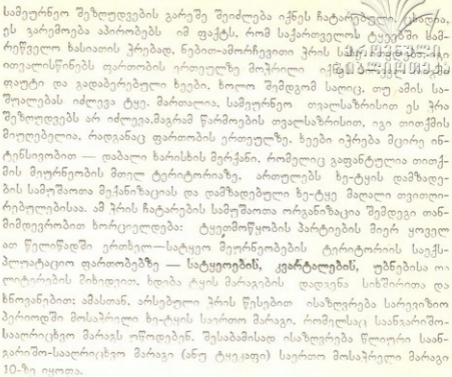 სამეურნეო შეზღუდვების გარეშე შეიძლება იქნეს ჩატარებული. ცხადია,
ეს გარემოება აპირობებს იმ ფაქტს, რომ საქართველოს ტყეებში სამ-
რეწველო ხასიათის ჭრებად, ნებით-ამორჩევითი ჭრის
ითვალისწინებს ფართობის ერთეულზე მოჭრილი იქნ
ფაუტი და გადაბერებული ხეები, ხოლო შემდგომ საღიც, თუ ამის სა-
შუალებას იძლევა ტყე. მართალია, სამეურნეო თვალსაზრისით ეს ჭრა
შეზღუდვებს არ იძლევა, მაგრამ წარმოების თვალსაზრისით, იგი თითქმის
მიუღებელია, რადგანაც ფართობის ერთეულზე, ხეები იჭრება მცირე ინ-
ტენსივობით — დაბალი ხარისხის მერქანი, რომელიც გაფანტულია თითქ-
მის მეურნეობის მთელ ტერიტორიაზე, ართულებს ხე-ტყის დამზადე-
ბის სამუშაოთა მექანიზაციას და დამზადებული ხე-ტყე მაღალი თვითღი-
რებულებისაა. ამ ჭრის ჩატარების სამუშაოთა ორგანიზაცია შემდეგი თან-
მიმდევრობით ხორციელდება: ტყეთმოწყობის პარტიების მიერ ყოველ
ათ წელიწადში ერთხელ—სატყეო მეურნეობების ტერიტორიის საექს-
პლუატაციო ფართობებზე — სატყეოების, კვარტალების, უბნებისა და
ლიტერების მიხედვით, ხდება ტყის მარაგების დადგენა სიხშირითა და
ხნოვანებით; ამასთან, არსებული ჭრის წესებით ისაზღვრება სარევიზიო
პერიოდში მოსაჭრელი ხე-ტყის საერთო მარაგი, რომელსაც საანგარიშო-
სააღრიცხვო მარაგს უწოდებენ. შესაბამისად ისაზღვრება წლიური საან-
გარიშო-სააღრიცხვო მარაგი (ანუ ტყეკაფი) საერთო მოსაჭრელი მარაგი
10-ზე იყოფა.